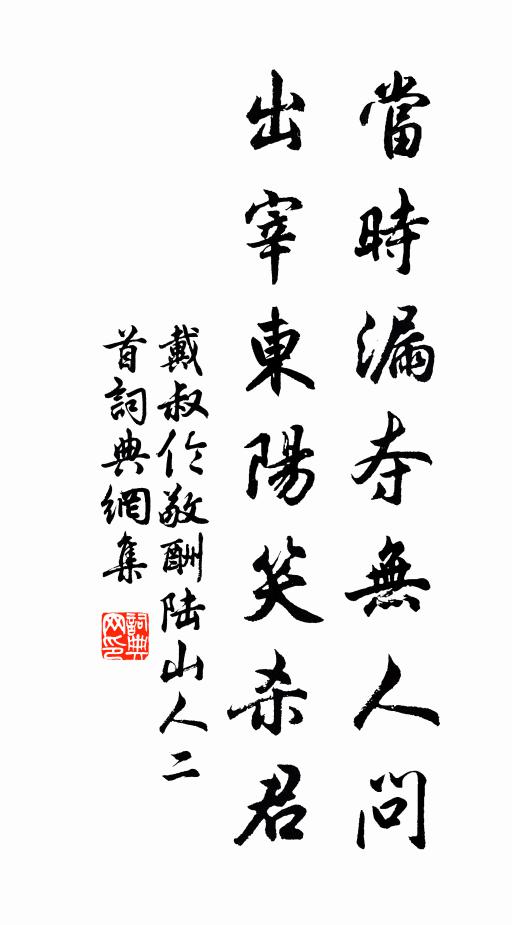 當時漏夺無人問
出宰東陽笑杀君
戴叔伦敬酬陆山人二
首詞典網集
詞典
网印